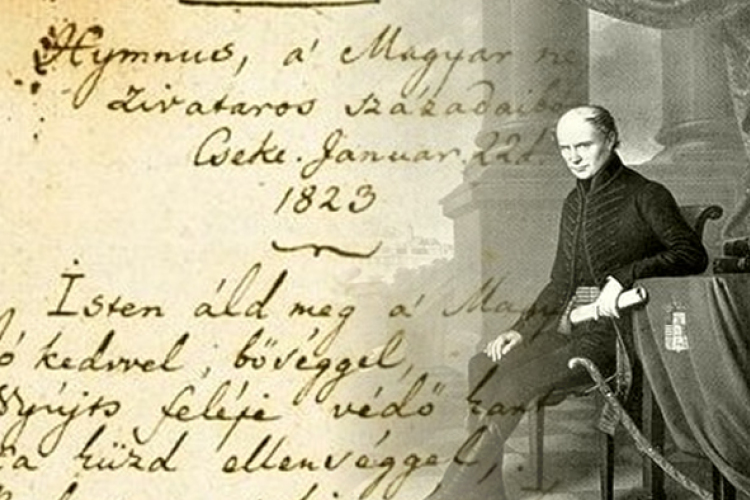 Hymnus, a' Magyar
Zivataros századaiból
Cseke. Januar. 22d.
1823
Isten áld meg a' Magy
ó kedvvel, bőséggel,
Nyújts feléje védő kart
Ha küzd ellenséggel,